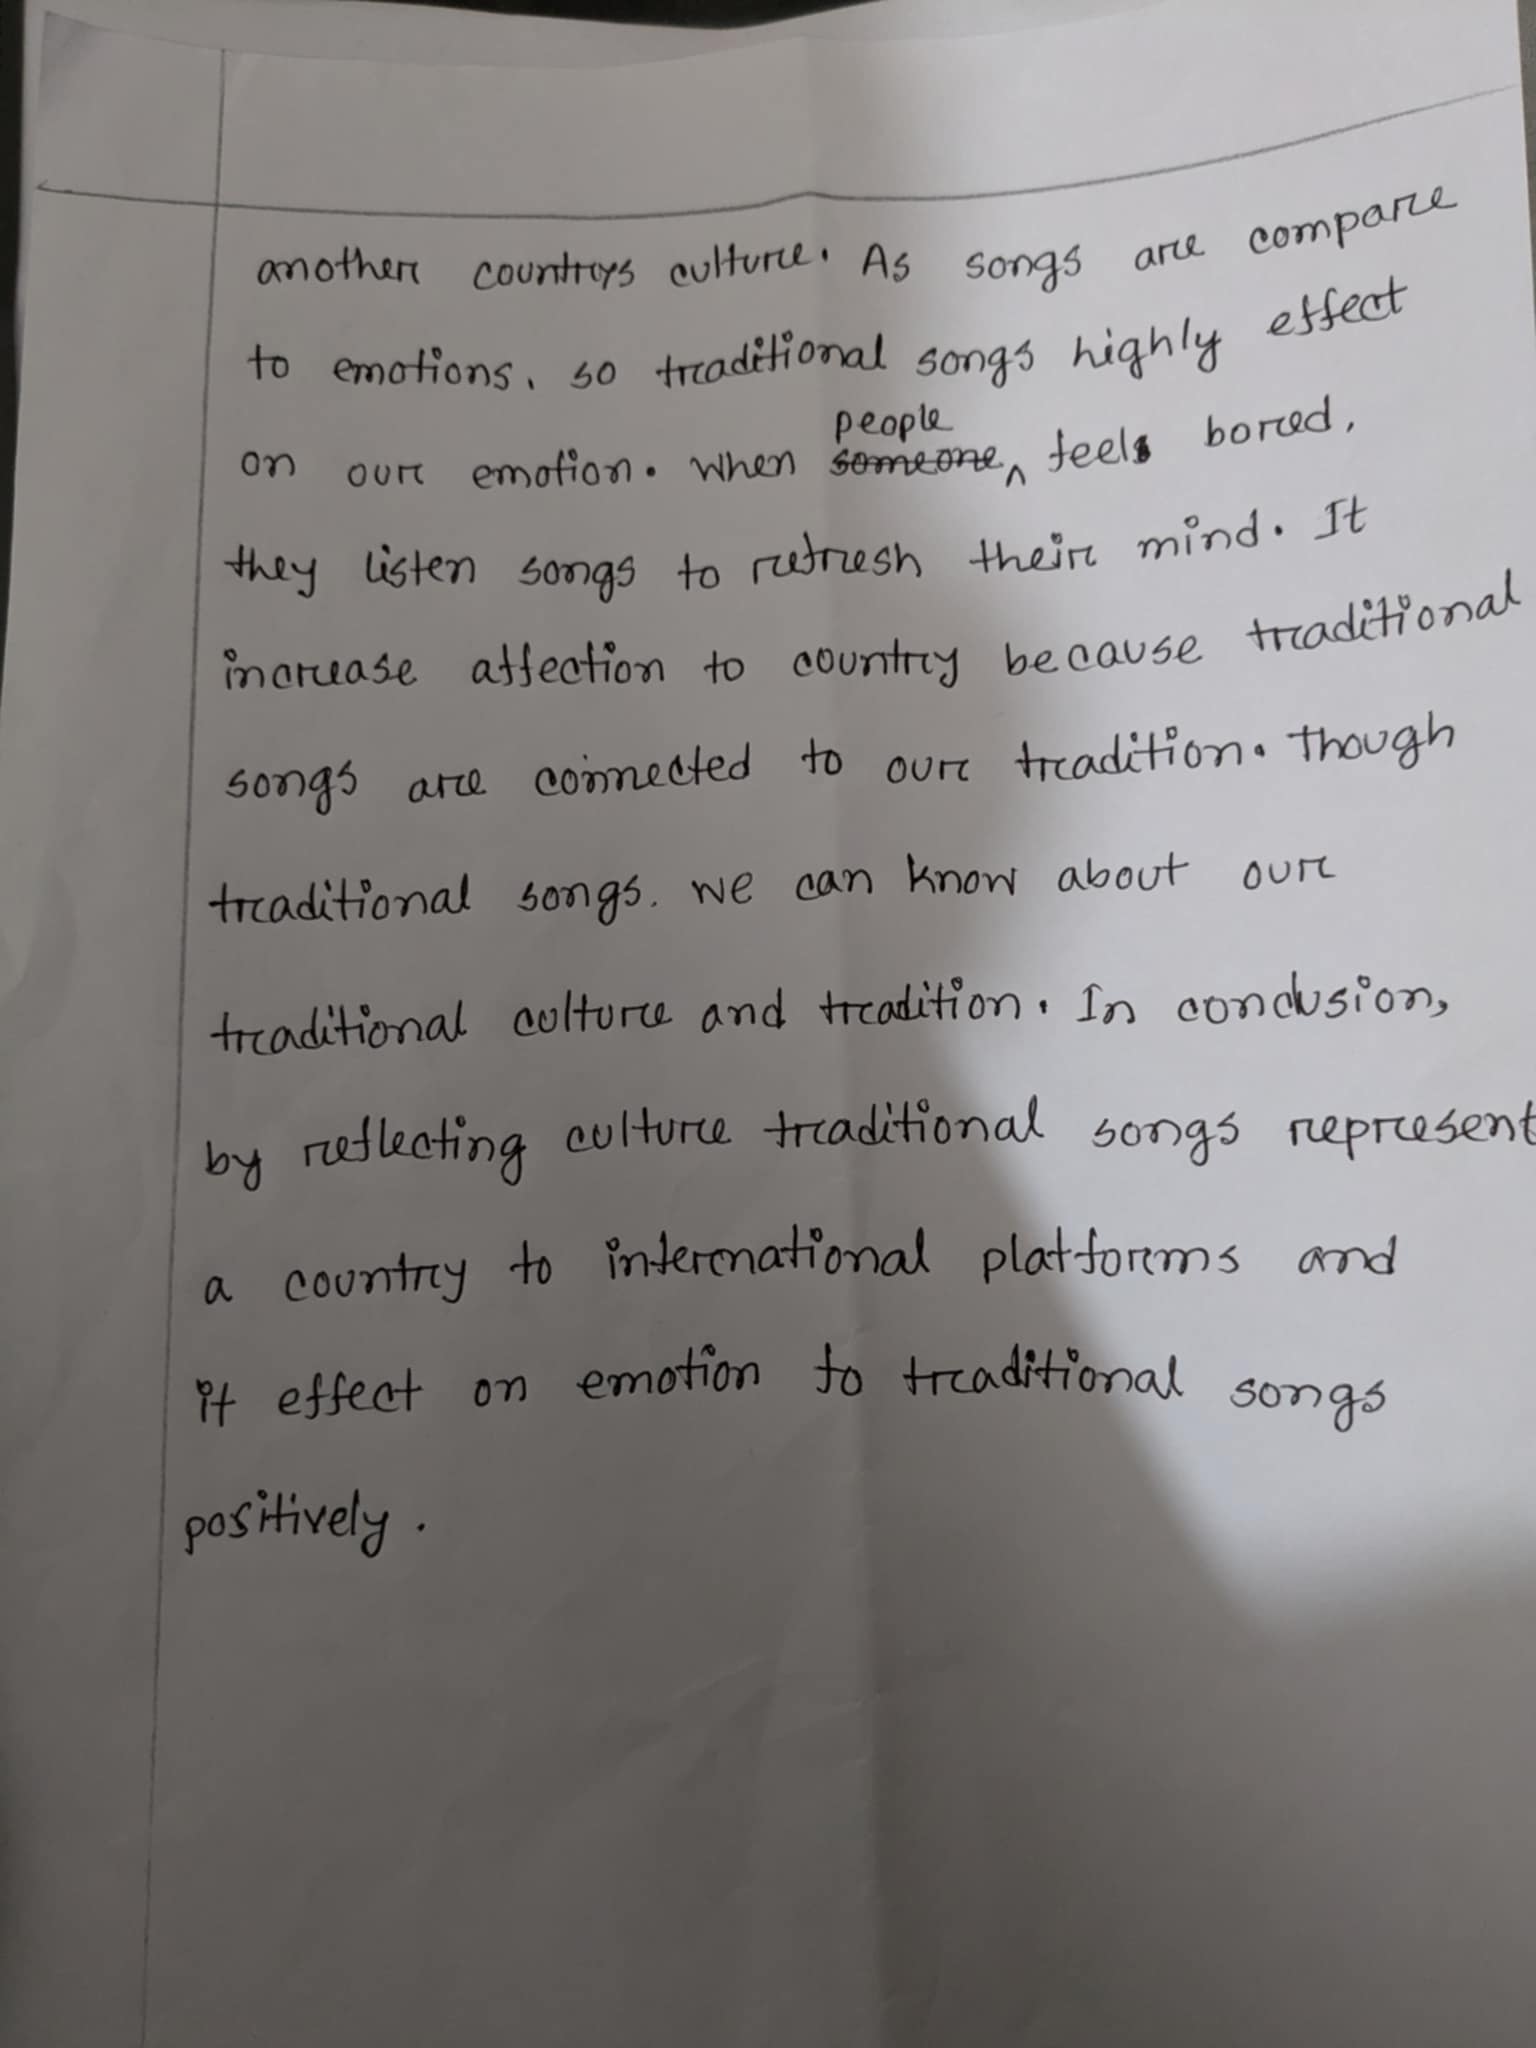 another countrys culture. As songs are compare
to emotions, so traditional songs highly effect
on our emotion. When people feel bored,
they listen songs to refresh their mind. It
increase affection to country because traditional
songs are connected to our tradition. Though
traditional songs. we can know about our
traditional culture and tradition. In conclusion,
by reflecting culture traditional songs represent
a country to international platforms and
it effect on emotion to traditional songs
positively.